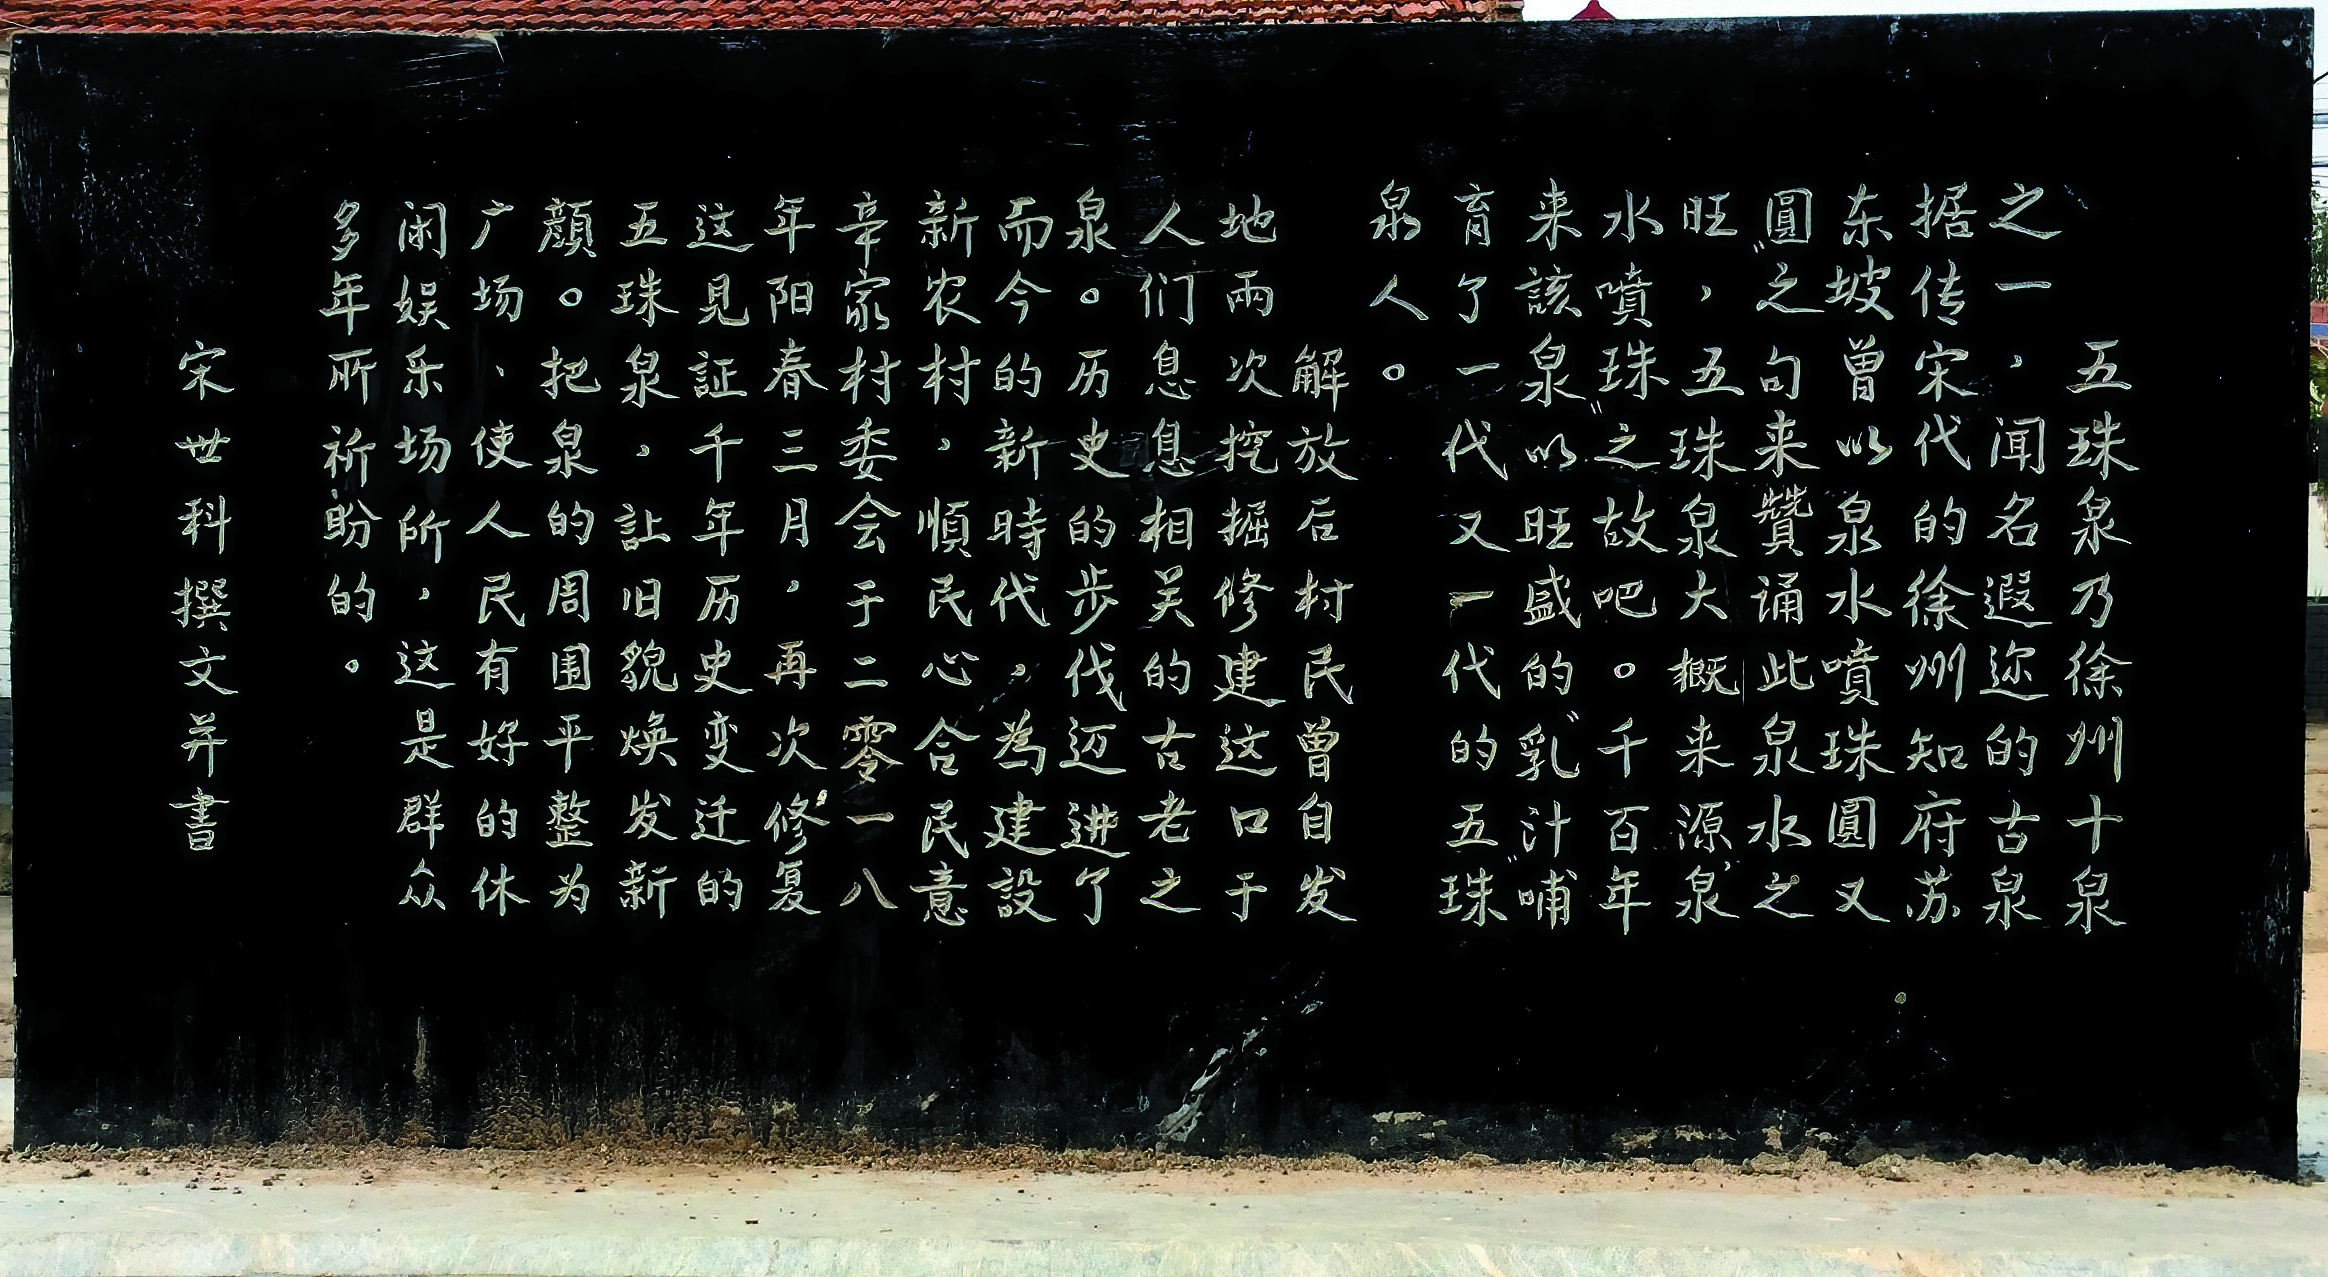 五珠泉乃徐州十泉
之一，闻名遐迩的古泉
据传宋代的徐州知府苏
东坡曾以泉水噴珠圓又
圓”之句来贊诵此泉水之
旺，五珠泉大概来源“泉
水噴珠”之故吧。千百年
来該泉以旺盛的“乳汁”哺
育了一代又一代的五珠
泉人。
解放后村民曾自发
地兩次挖掘修建这口于
人们息息相关的古老之
泉。历史的步伐迈进了
而今的新時代。為建設
新农村，順民心合民意
辛家村委会于二零一八
年阳春三月，再次修复
这見証千年历史变迁的
五珠泉，让旧貌焕发新
顔。把泉的周围平整为
广场、使人民有好的休
闲娱乐场所，这是群众
多年所祈盼的。
宋世科撰文并書